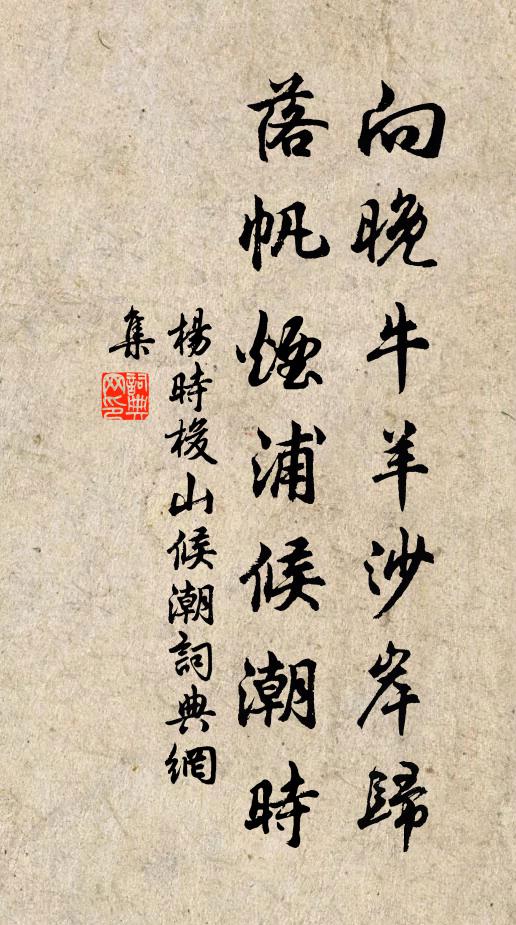 向晚牛羊沙岸歸
落帆煙浦候潮時
楊時梭山候潮詞典網
集
詞典网印